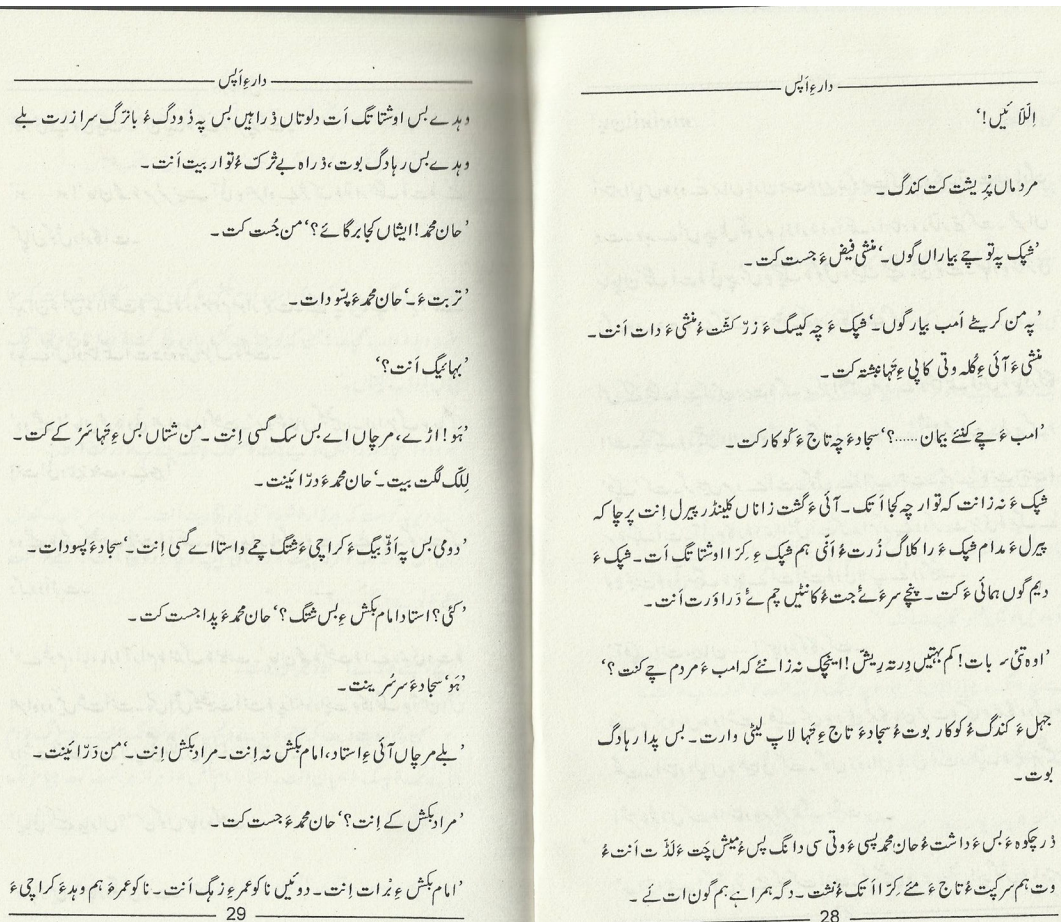 دارءِ اَپس
اِللّاَ ئیں!‘
مردماں پِڑیشت کت کندگ۔
’شپک پہ تو چے بیاراں گوں۔‘ منشی فیض ءَ جست کت۔
’پہ من کریٹے اَمب بیار گوں۔‘ شپک ءَ چہ کیسگ ءَ زرّ کشّت ءُ منشی ءَ دات اَنت۔
منشی ءَ آئی ءِ گلہ وتی کاپی ءِ تہا نبشتہ کت۔
’امب ءَ چے کننے بیمان......؟‘ سجاد ءَ چہ تاج ءَ کُوکار کت۔
شپک ءَ نہ زانت کہ توار چہ کجا اَتک۔ آئی ءَ گشت زاناں کلینڈر پیرل اِنت پرچا کہ
پیرل ءَ مدام شپک ءَ را کلاگ زُرت ءُ اَنّی ہم شپک ءِ کِرّا اوشتاتگ اَت۔ شپک ءَ
دیم گوں ہمائی ءَ کت۔ پنچے سر ءَ ئے جت ءُ کانٹیں چم ئے دَر اوَرت اَنت۔
’اوہ تئی سہ بات! کم بہتیں دِرتہ رِیش! اینچک نہ زانئے کہ امب ءَ مردم چے کنت؟‘
جہل ءَ کندگ ءُ کوکار بوت ءُ سجاد ءَ تاج ءِ تہا لاپ لیٹی وارت۔ بس پدا رہادگ
بوت۔
دْر چکوہ ءَ بس ءَ داشت ءُ حان محمد پسی ءَ وتی سی دانگ پس ءُ میش چَت ءَ لَڈّ ت اَنت ءُ
وت ہم سر کپت ءُ تاج ءَ مئے کِرّا اَتک ءُ نشت۔ دگہ ہمراہے ہم گون ات ئے ۔
28
دارءِ اَپس
وہدے بس اوشتاتگ اَت دلوتاں ڈراہیں بس پہ ڈودگ ءُ باترگ سرا زرت بلے
وہدے بس رہادگ بوت، ڈراہ بے ثْرک ءُ توار بیت اَنت۔
’حان محمد! ایشاں کجا برگائے؟‘ من جُست کت۔
’تربت ءَ۔‘ حان محمد ءَ پسّو دات۔
’بہائیگ اَنت؟‘
’ہَو! اڑے، مرچاں اے بس سک گسی اِنت ۔ من شتاں بس ءِ تہا سَرُ کے کت۔
لِلّک لگت بیت۔‘ حان محمد ءَ درّائینت۔
’دومی بس پہ اَڈّ بیگ ءَ کراچی ءَ شتگ چمے واستا اے گسی اِنت۔‘ سجاد ءَ پسودات۔
’کئی؟ استاد امام بکش ءِ بس شتگ؟‘ حان محمد ءَ پدا جست کت۔
’ہَو‘ سجاد ءَ سر سُرینت۔
’بلے مرچاں آئی ءِ استاد، امام بکش نہ اِنت۔ مراد بکش اِنت۔‘ من دَرّائینت۔
’مراد بکش کے اِنت؟‘ حان محمد ءَ جست کت۔
’امام بکش ءِ برات اِنت۔ دوئیں ناکو عمر ءِ زہگ اَنت۔ ناکو عمر ءَ ہم وہد ءَ کراچی ءَ
29